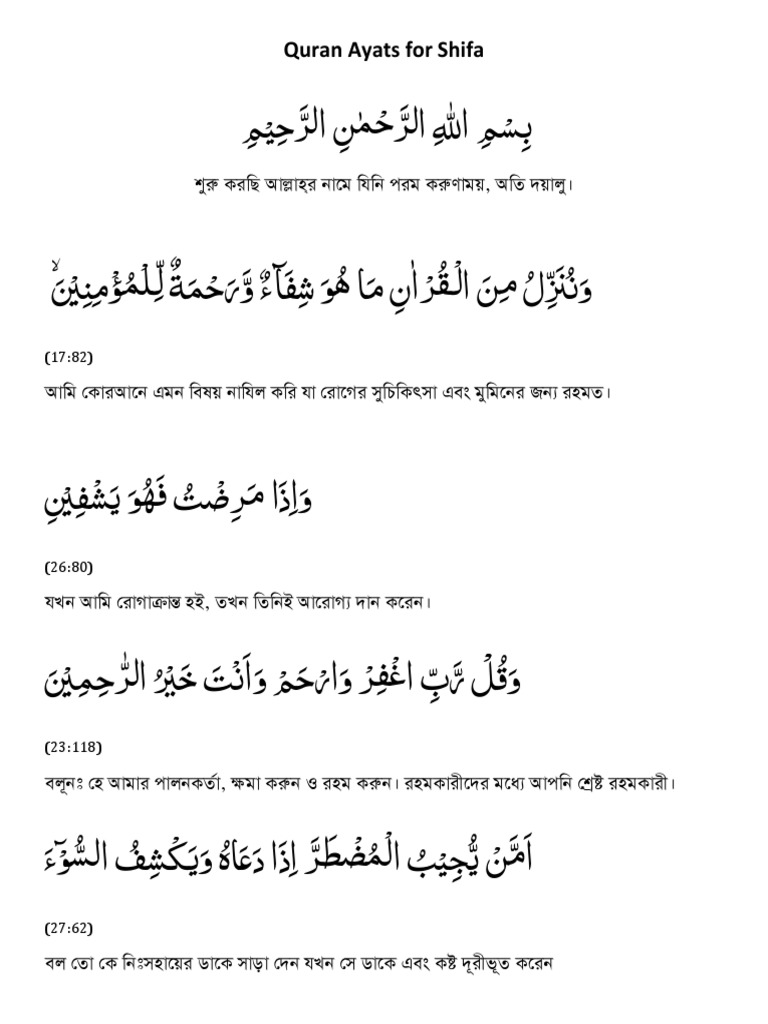 Quran Ayats for Shifa
بِسْمِ اللهِ الرَّحْمٰنِ الرَّحِيْمِ
শুরু করছি আল্লাহ্‌র নামে যিনি পরম করুণাময়, অতি দয়ালু।
وَنُنَزِّلُ مِنَ الْقُرْاٰنِ مَا هُوَ شِفَآءٌ وَّرَحْمَةٌ لِّلْمُؤْمِنِيْنَ ۙ
(17:82)
আমি কোরআনে এমন বিষয় নাযিল করি যা রোগের সুচিকিৎসা এবং মুমিনের জন্য রহমত।
وَاِذَا مَرِضْتُ فَهُوَ يَشْفِيْنِ
(26:80)
যখন আমি রোগাক্রান্ত হই, তখন তিনিই আরোগ্য দান করেন।
وَقُلْ رَّبِّ اغْفِرْ وَارْحَمْ وَاَنْتَ خَيْرُ الرّٰحِمِيْنَ
(23:118)
বলূনঃ হে আমার পালনকর্তা, ক্ষমা করুন ও রহম করুন। রহমকারীদের মধ্যে আপনি শ্রেষ্ট রহমকারী।
اَمَّنْ يُّجِيْبُ الْمُضْطَرَّ اِذَا دَعَاهُ وَيَكْشِفُ السُّوْٓءَ
(27:62)
বল তো কে নিঃসহায়ের ডাকে সাড়া দেন যখন সে ডাকে এবং কষ্ট দূরীভূত করেন